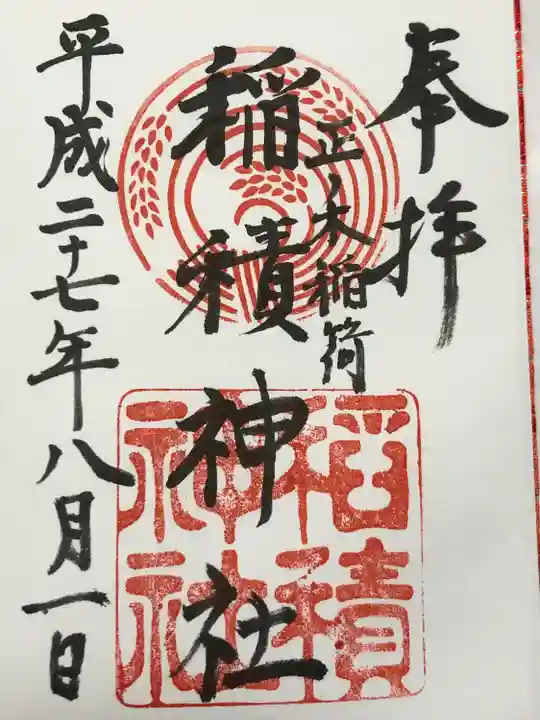 奉拝
正ノ木稲荷
稲積神社
稲積
神社
平成二十七年八月一日